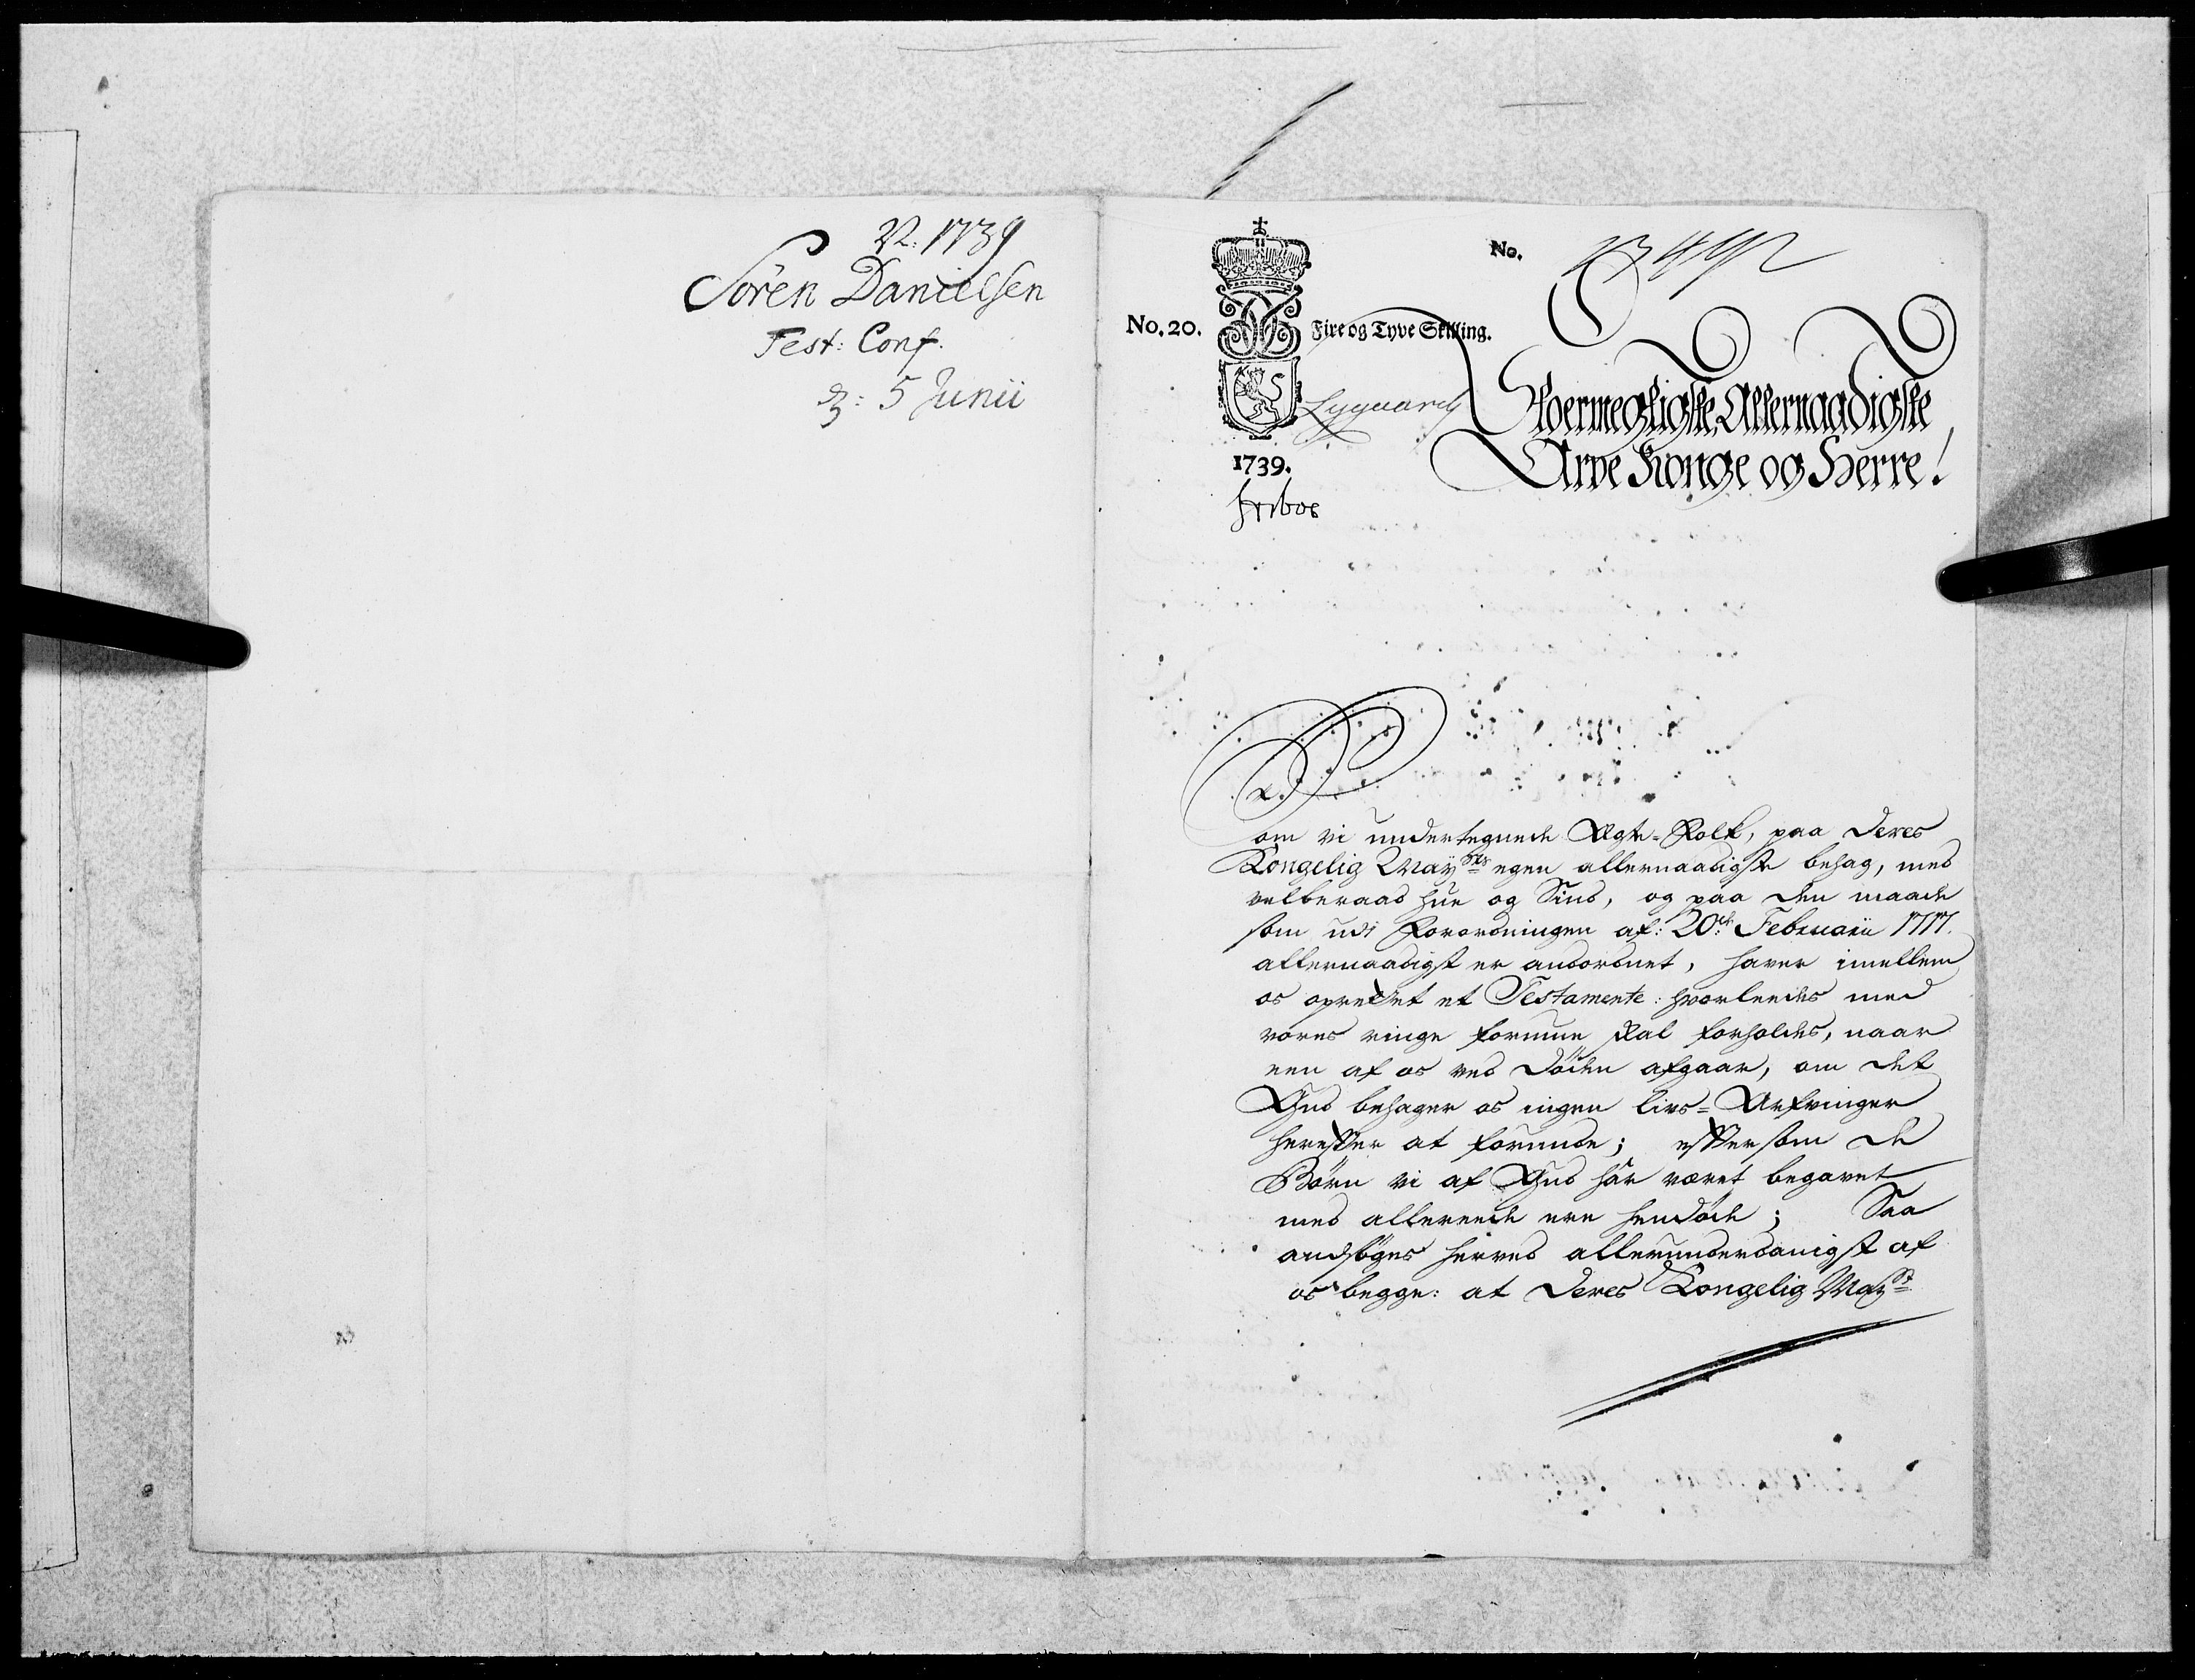 1739
Sören Danielsen
Test: Conf.
5 Junii
No.
No. 20.
Fire og Tyve Skilling.
Lygaard
Stoermegtigste, Allernaadigste
Arve Konge og Herre!
1739.
om vi undertegnede Ægte-Folk, paa Deres
Kongelig May<sup>ts</sup> egen allernaadigste behag, med
velberaad hue og Sind, og paa den maade
som udi Forordningen af: 20de Februarii 1717.
allernaadigst er andordnet, haver imellem
os oprettet et Testamente: hvorleedes med
vores ringe formue skal forholdes, naar
een af os ved döden afgaar, om det
Gud behager os ingen livs-Arfvinger
herefter at forunde; eftersom de
Börn vi af Gud har været begavet
med allereede ere hendöde; Saa
andsöges herved allerunderdanigst af
os begge: at Deres Kongelig May<sup>st</sup>